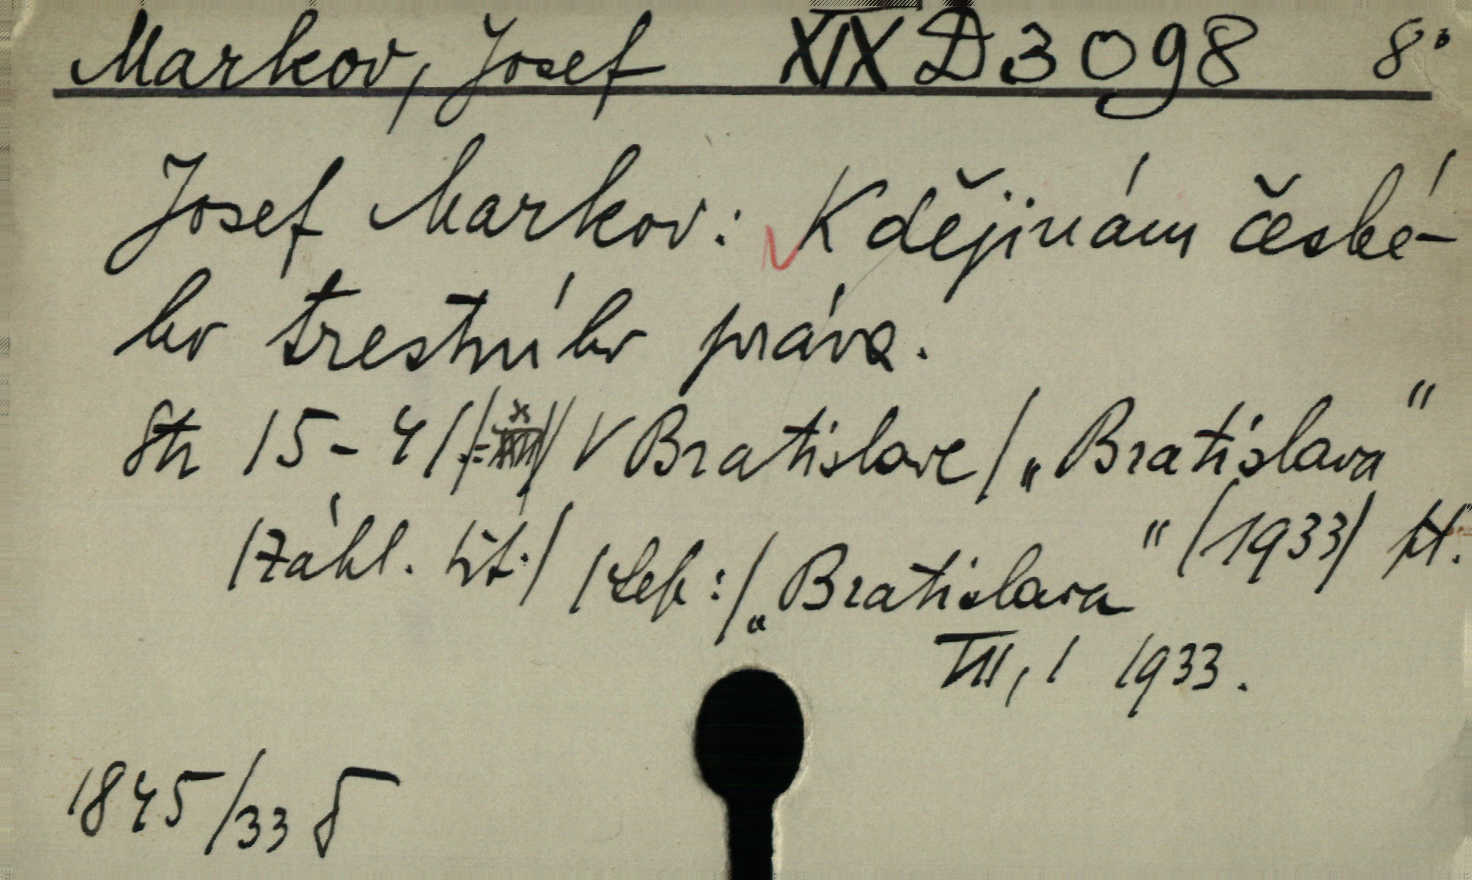 Markov, Josef XIX D 3098 8°
Josef Markov: K dějinám české-
ho trestního práva.
Str 15-41 / V Bratislave / „Bratislava"
/Záhl. tit./ /Sep:/ „Bratislava" /1933/
VII, 1 1933.
1845/33